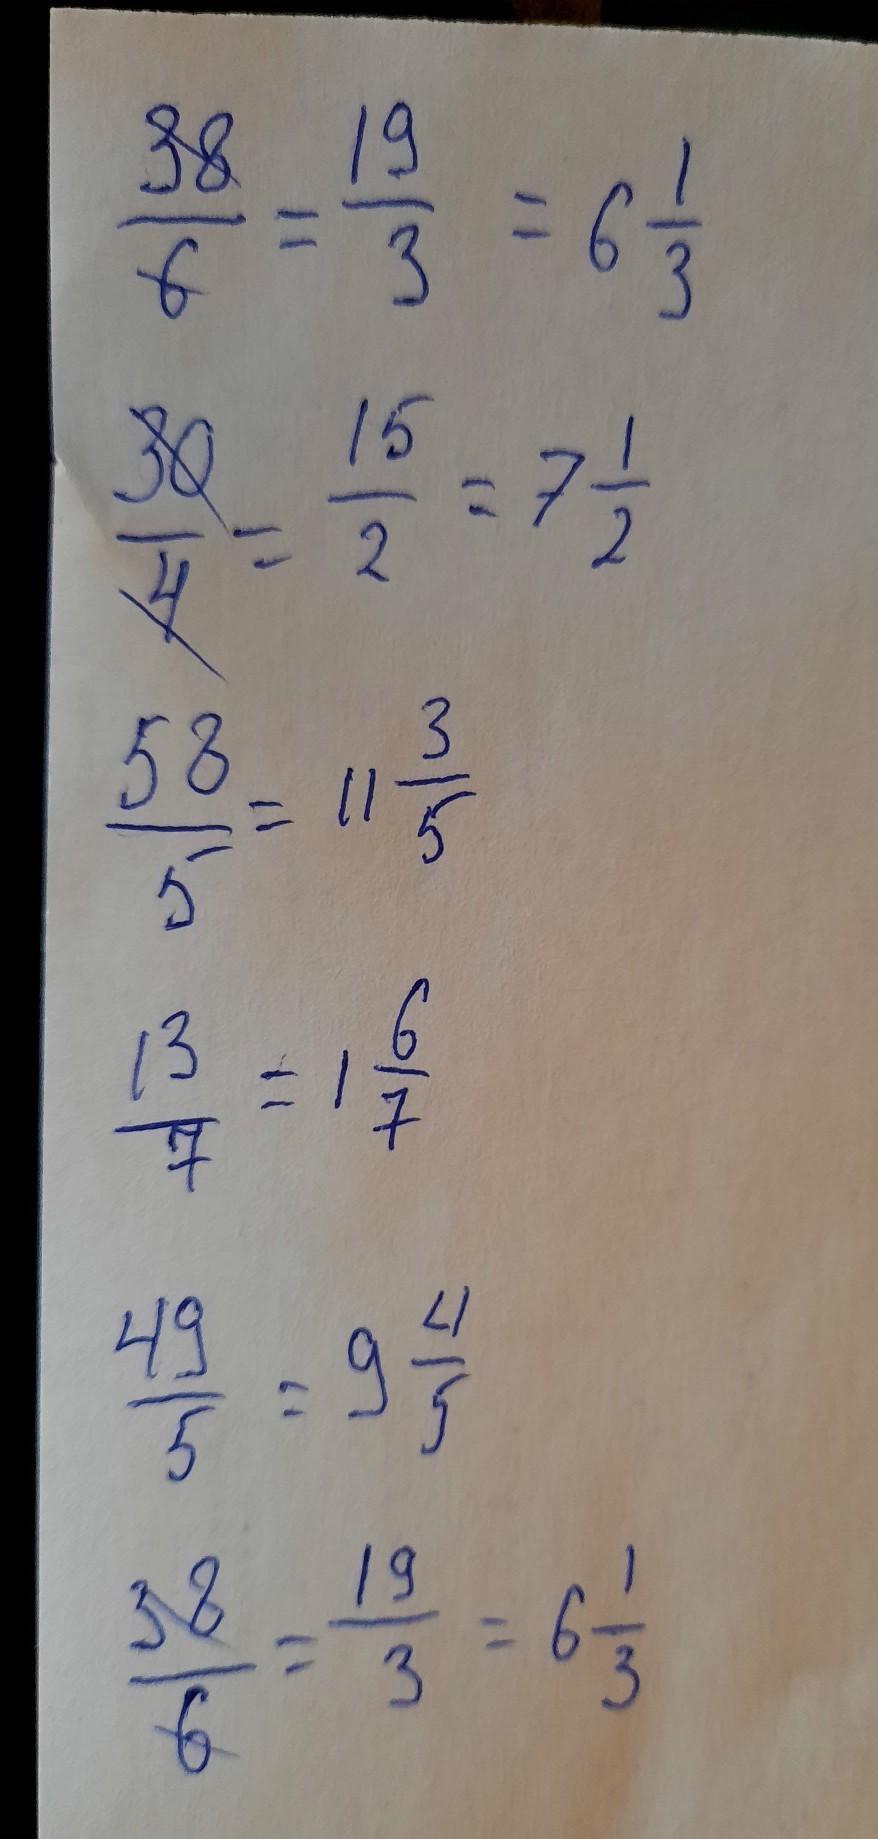 38/6 = 19/3 = 6 1/3
30/4 = 15/2 = 7 1/2
58/5 = 11 3/5
13/7 = 1 6/7
49/5 = 9 4/5
38/6 = 19/3 = 6 1/3